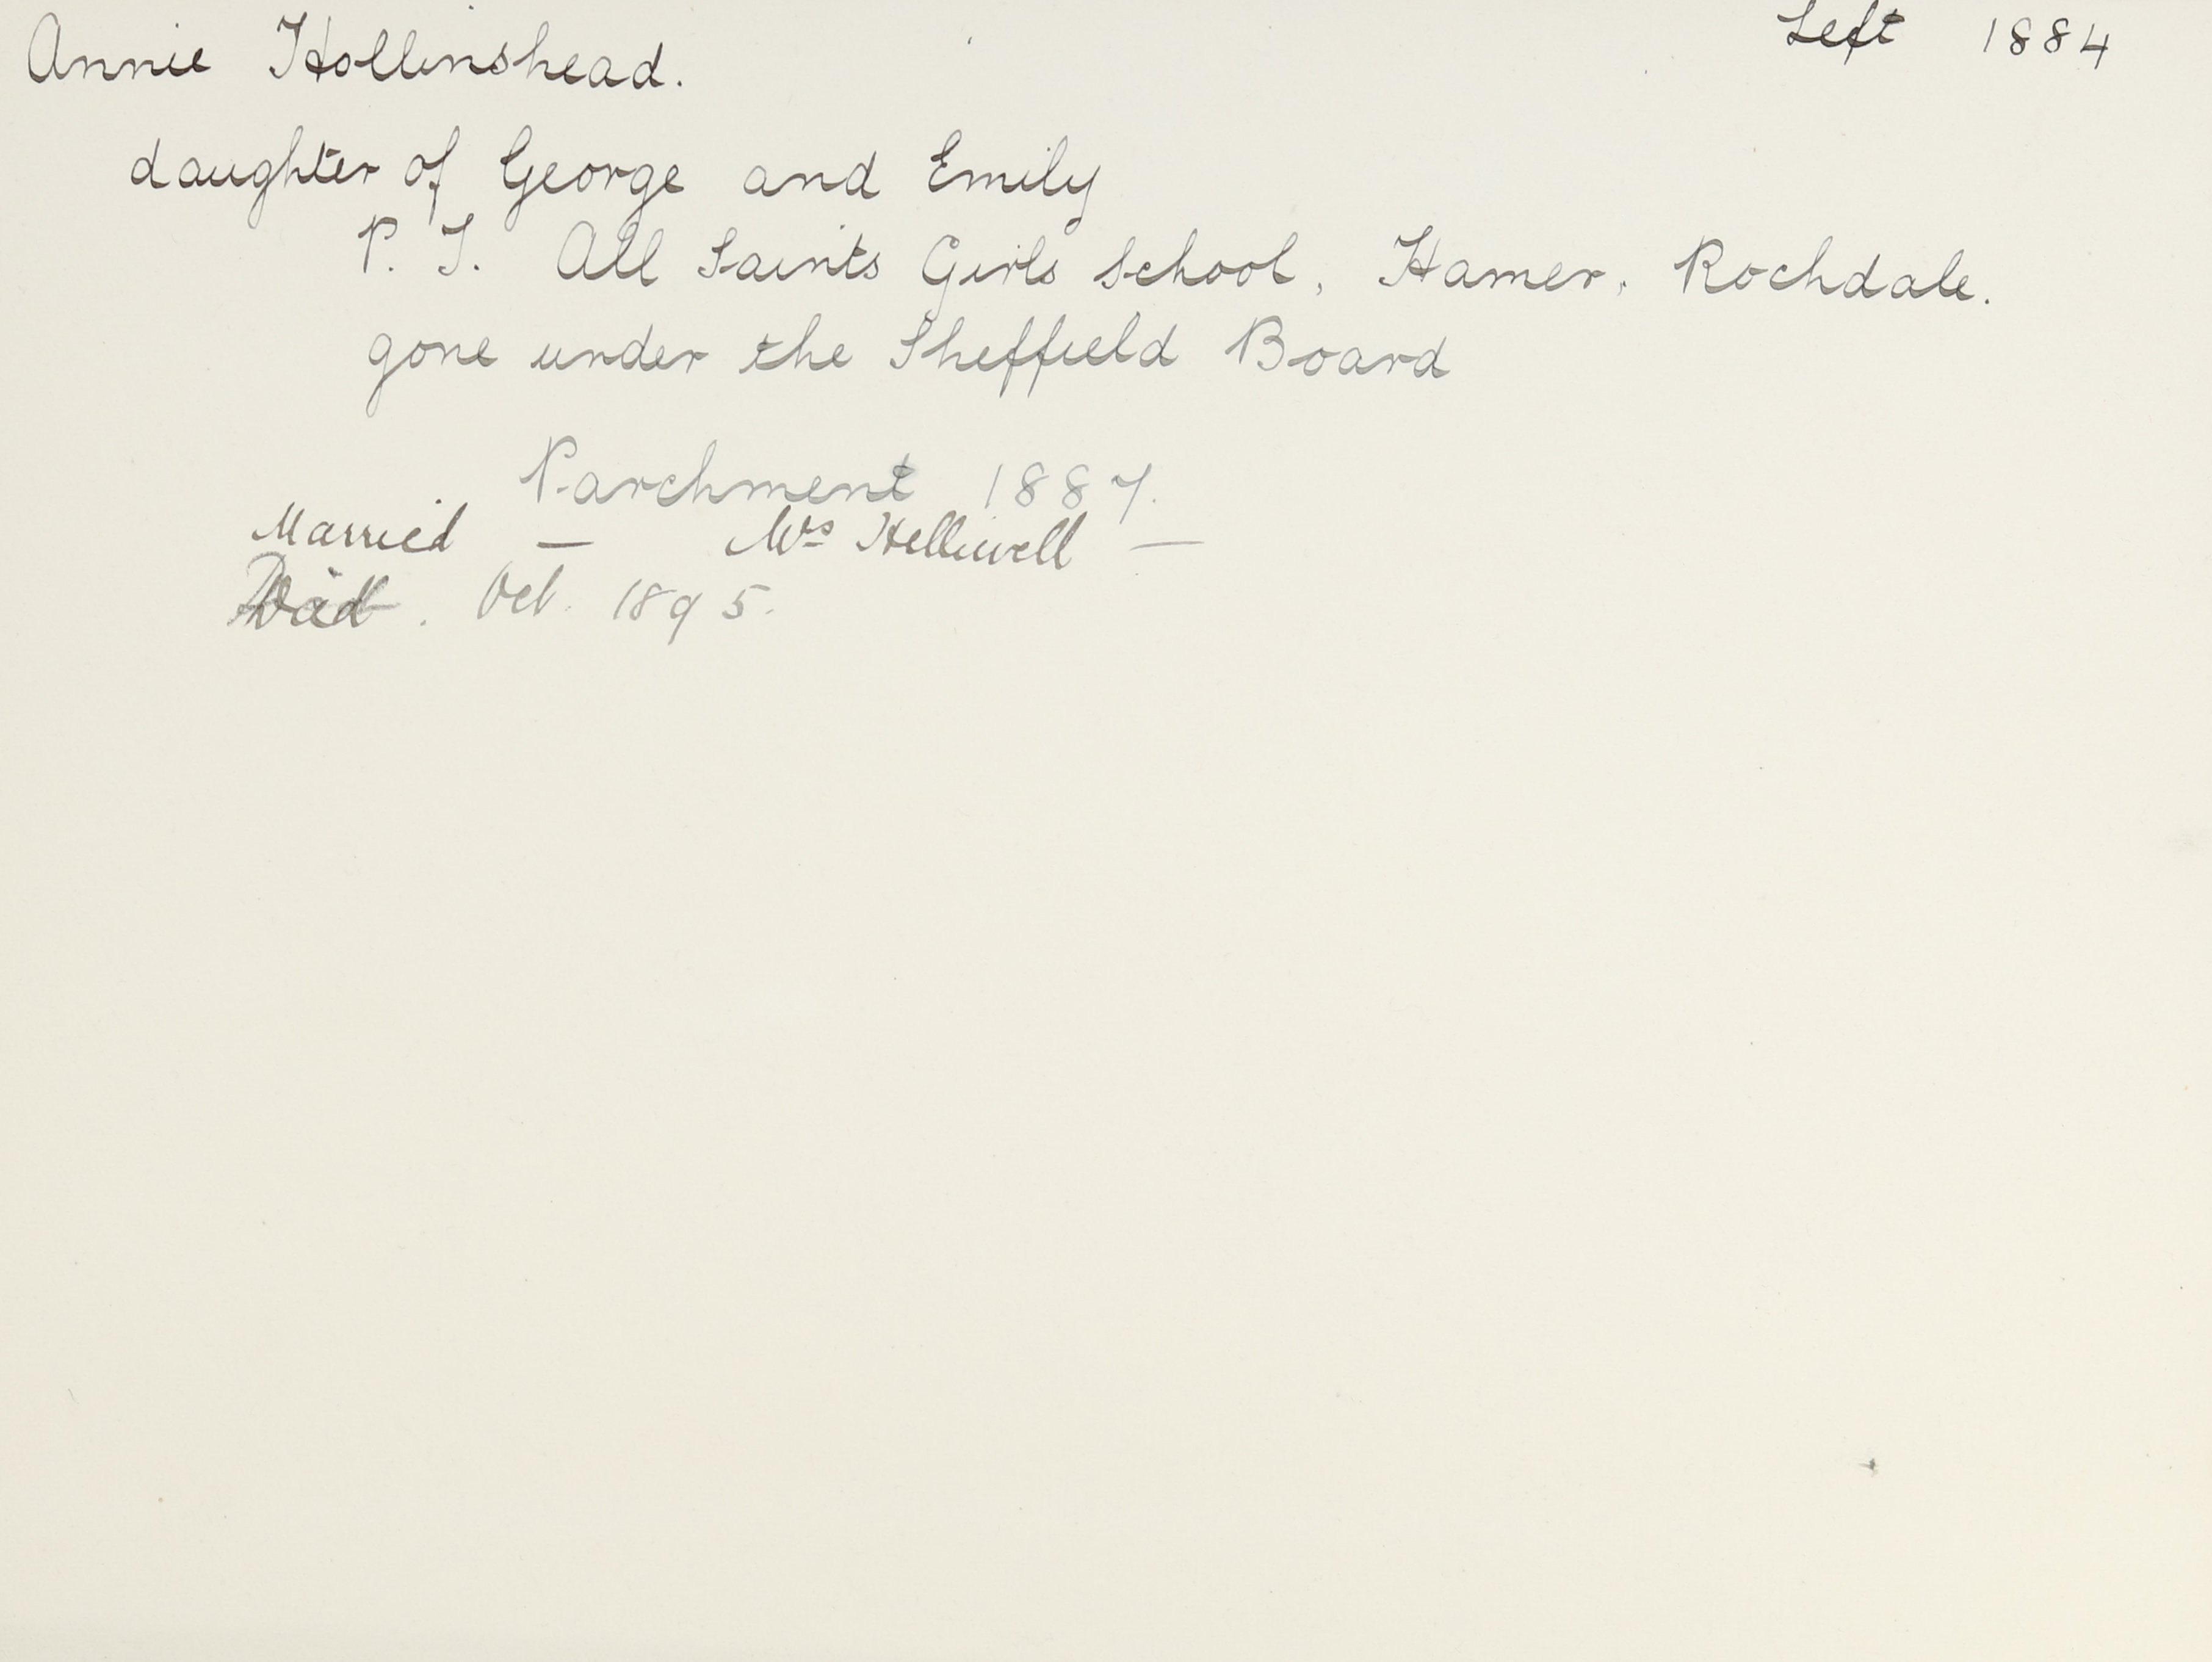 Annie Hollinshead. Left 1884
daughter of George and Emily
P. T. All Saints Girls School, Hamer. Rochdale.
gone under the Sheffield Board
Parchment 1887.
Married — Mrs Helliwell —
Died. Oct. 1895.